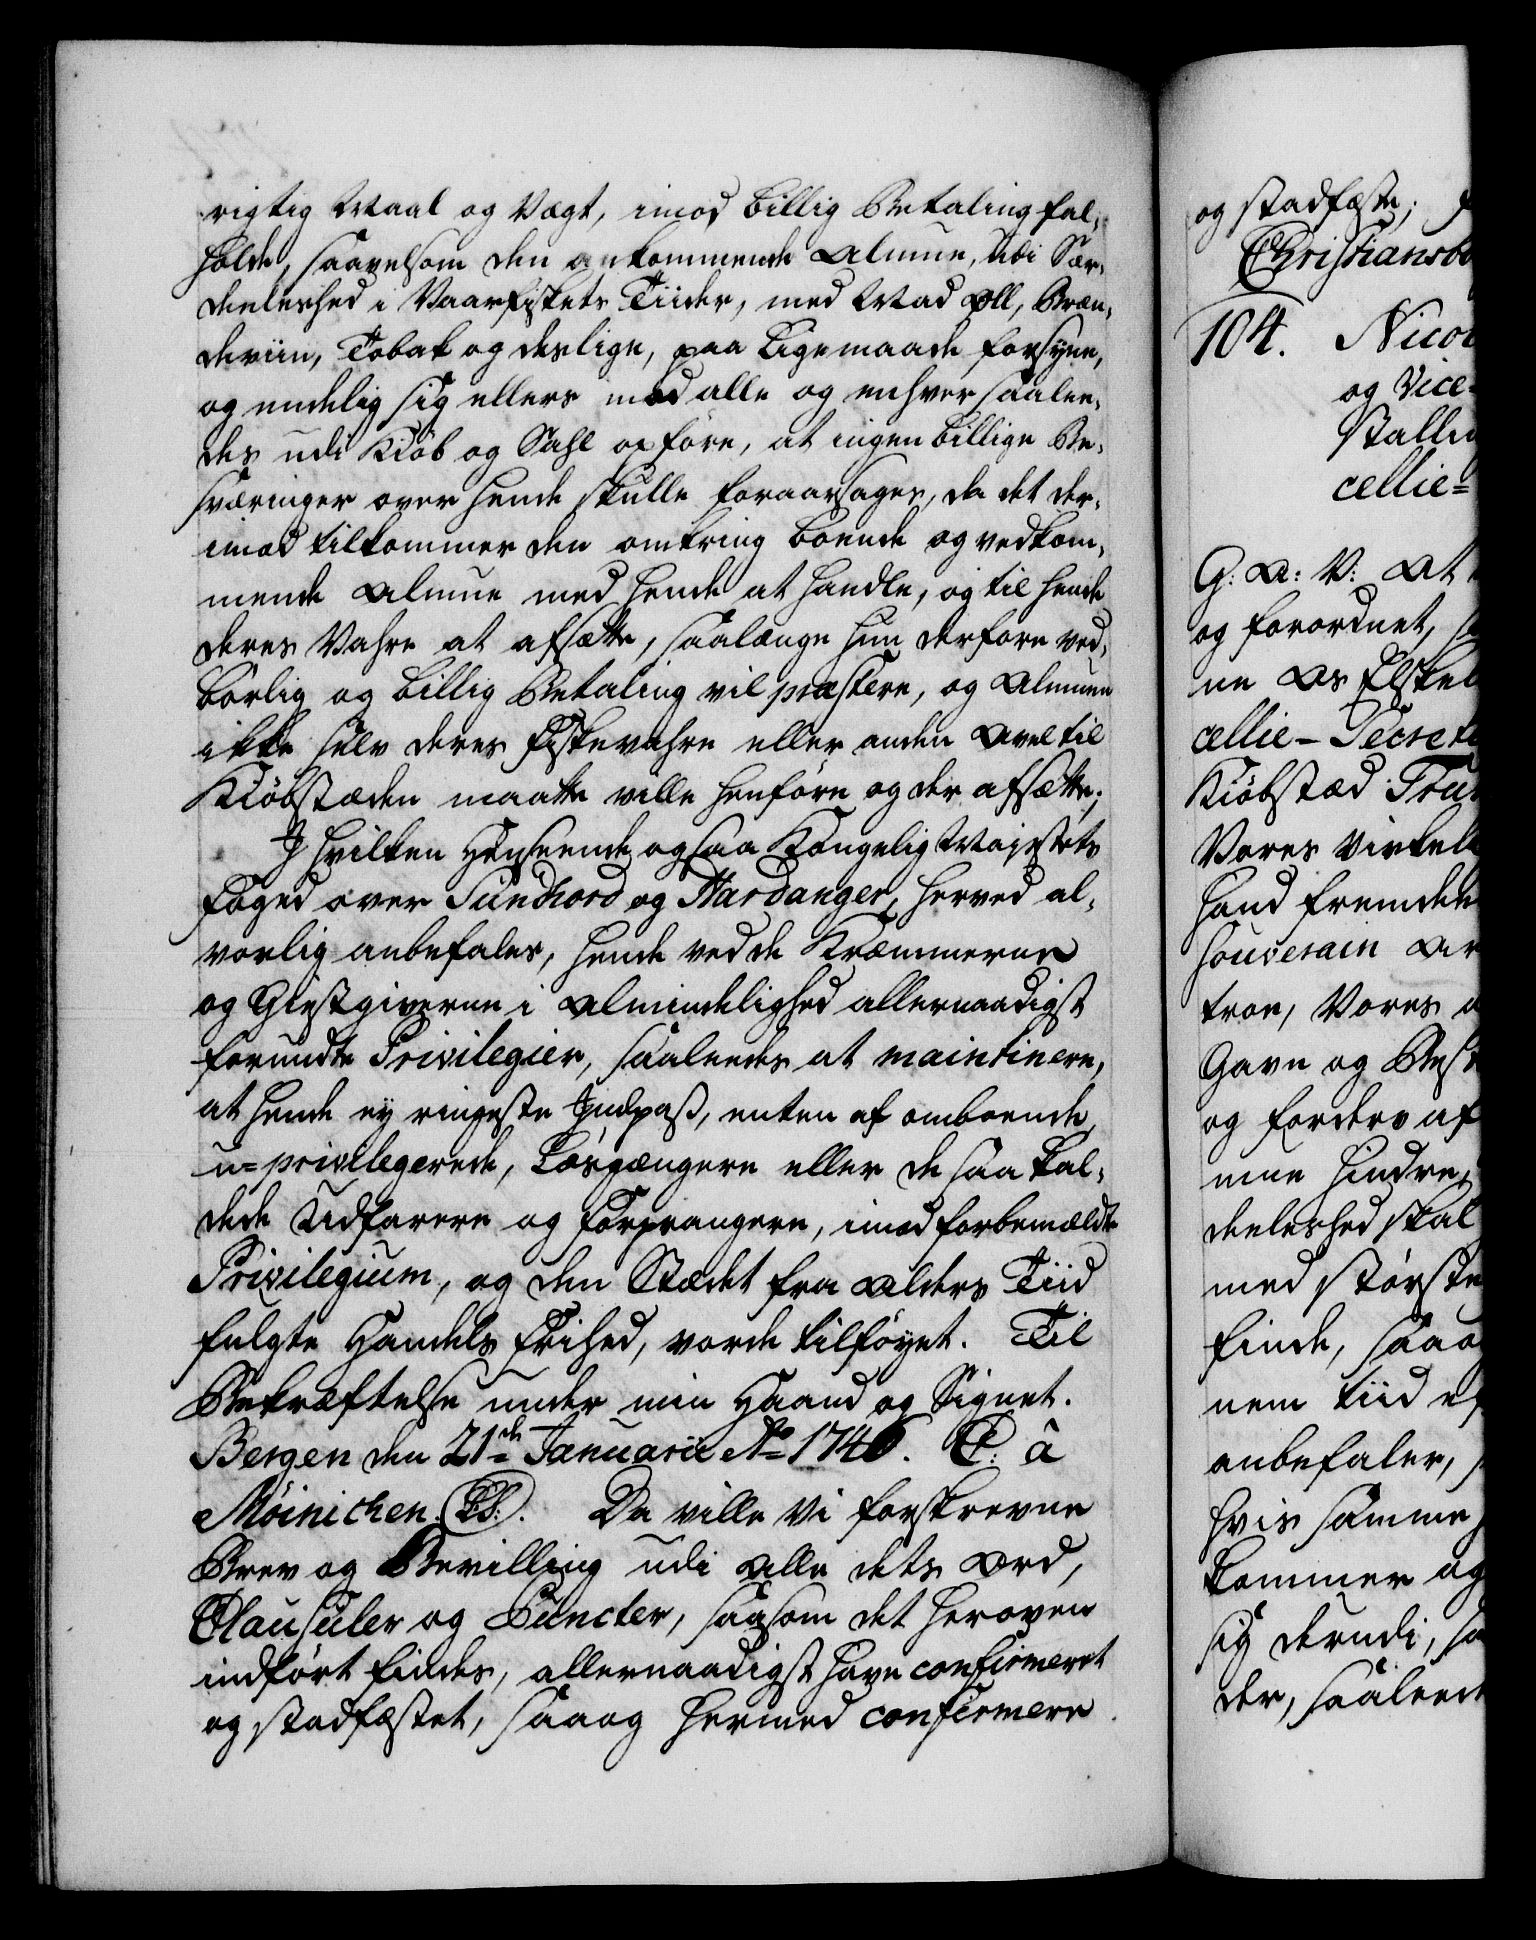 rigtig Maal og Vægt, imod billig Betaling fal,
holde, saavelsom den ankommende Almue, udi Sær,
deeleshed i Vaarfiskets Tiider, med Mad Øll, Bræn,
deviin, Tobak og deslige, paa Ligemaade forsyne,
og endelig sig ellers mod alle og enhver saalee,
des udi Kiøb og Sahl opføre, at ingen billige Be,
sværinger over hende skulle foraarsages, da det der,
imod tilkommer den omkring boende og vedkom,
mende Almue med hende at handle, og til hende
deres Vahre at afsætte, saalænge hun derfore ved,
børlig og billig Betaling vil præstere, og Almuen
ikke selv deres Fiskevahre eller anden Avel til
Kiøbstæden maatte ville henføre og der afsætte;
I hvilken Henseende ogsaa Kongelig Majestets
Foged over Sundhord og Hardanger, herved al,
vorlig anbefales, hende ved de Kræmmerne
og Giestgiverne i Almindelighed allernaadigst
forundte Privilegier, saaleedes at maintinere,
at hende ey ringeste Indpas, enten af omboende
u=privilegerede, Løsgængere eller de saa kal,
dede Udfarere og Forprangere, imod forbemældte
Privilegium, og den Stædet fra Alders Tiid
fulgte Handels Frihed, vorde tilføyet. Til
Bekræftelse under min Haand og Signet.
Bergen den 21de Januarii Ao 1746. C: â
Möinichen. (LS:). Da ville Vi forskrevne
Brev og Bevilling udi alle dets Ord,
Clausuler og Puncter, saasom det heroven
indført findes, allernaadigst have confirmeret
og stadfæstet, saa og hermed confirmere
og stadfæste;
Christiansb
104. Nico
og Vice-
Stall
cellie=
G: A: V: At
og forordnet,
ne Os Elskel
cellie-Secrete
Kiøbstæd Tru
Vores virkel
hand fremdeele
souverain Ar
troe, Vores
Gavn og Best
og fordervf
mue hindre,
deeleshed skal
med største
finde, saa
nem tiid ef
anbefaler,
hvis samme
kommer og
sig derudi, sa
der, saaleed